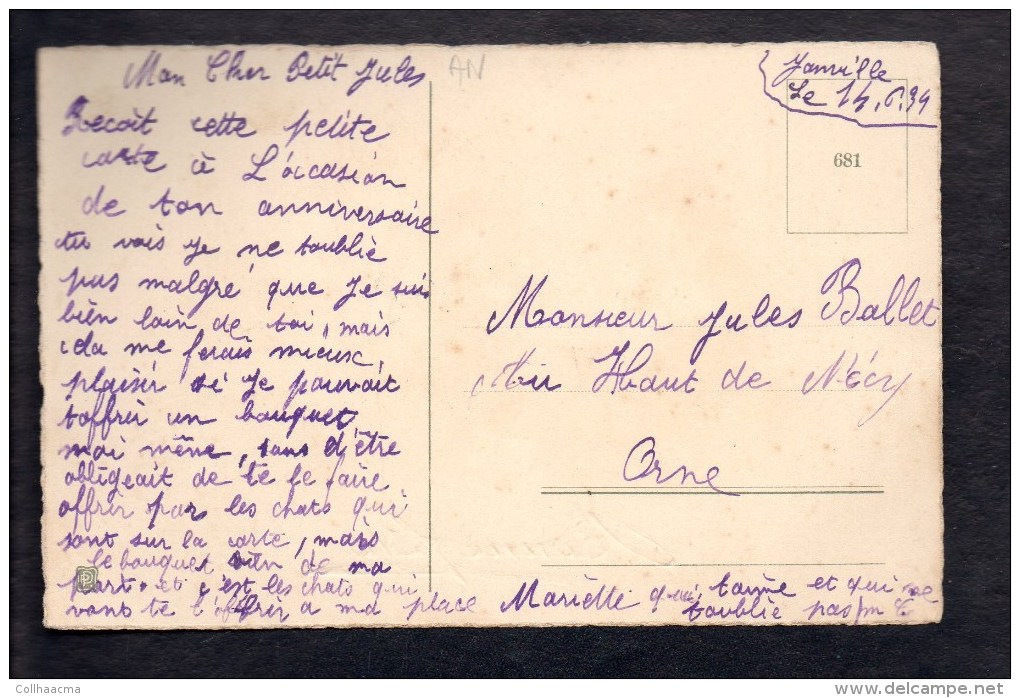 Mon Cher Petit Jules
AN
Janville
Le 14.6.34
681
Recoit cette petite
carte à L'occasion
de ton anniversaire
tu vois je ne toublie
pas malgré que je suis
bien loin de toi, mais
cela me ferais mieux
plaisir si je pouvait
t'offrir un bouquet
moi même, sans d'être
obligeait de te le faire
offrir par les chats qui
sont sur la carte, mais
le bouquet vien de ma
part. et c'est les chats qui
vont te l'offrir a ma place
Marielle qui, taime et qui ne
toublie pas
Monsieur Jules Ballet
Au Haut de Nécy
Orne
Collhaacma
www.delcampe.net